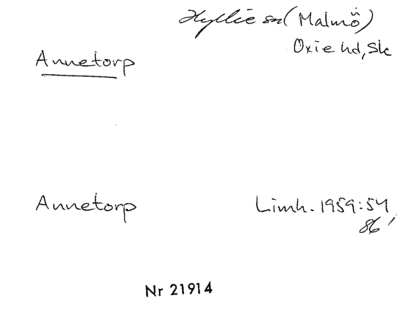 Hyllie sn (Malmö)
Oxie hd, Sk
Annetorp
Annetorp
Limh. 1959:54
86
Nr 21914